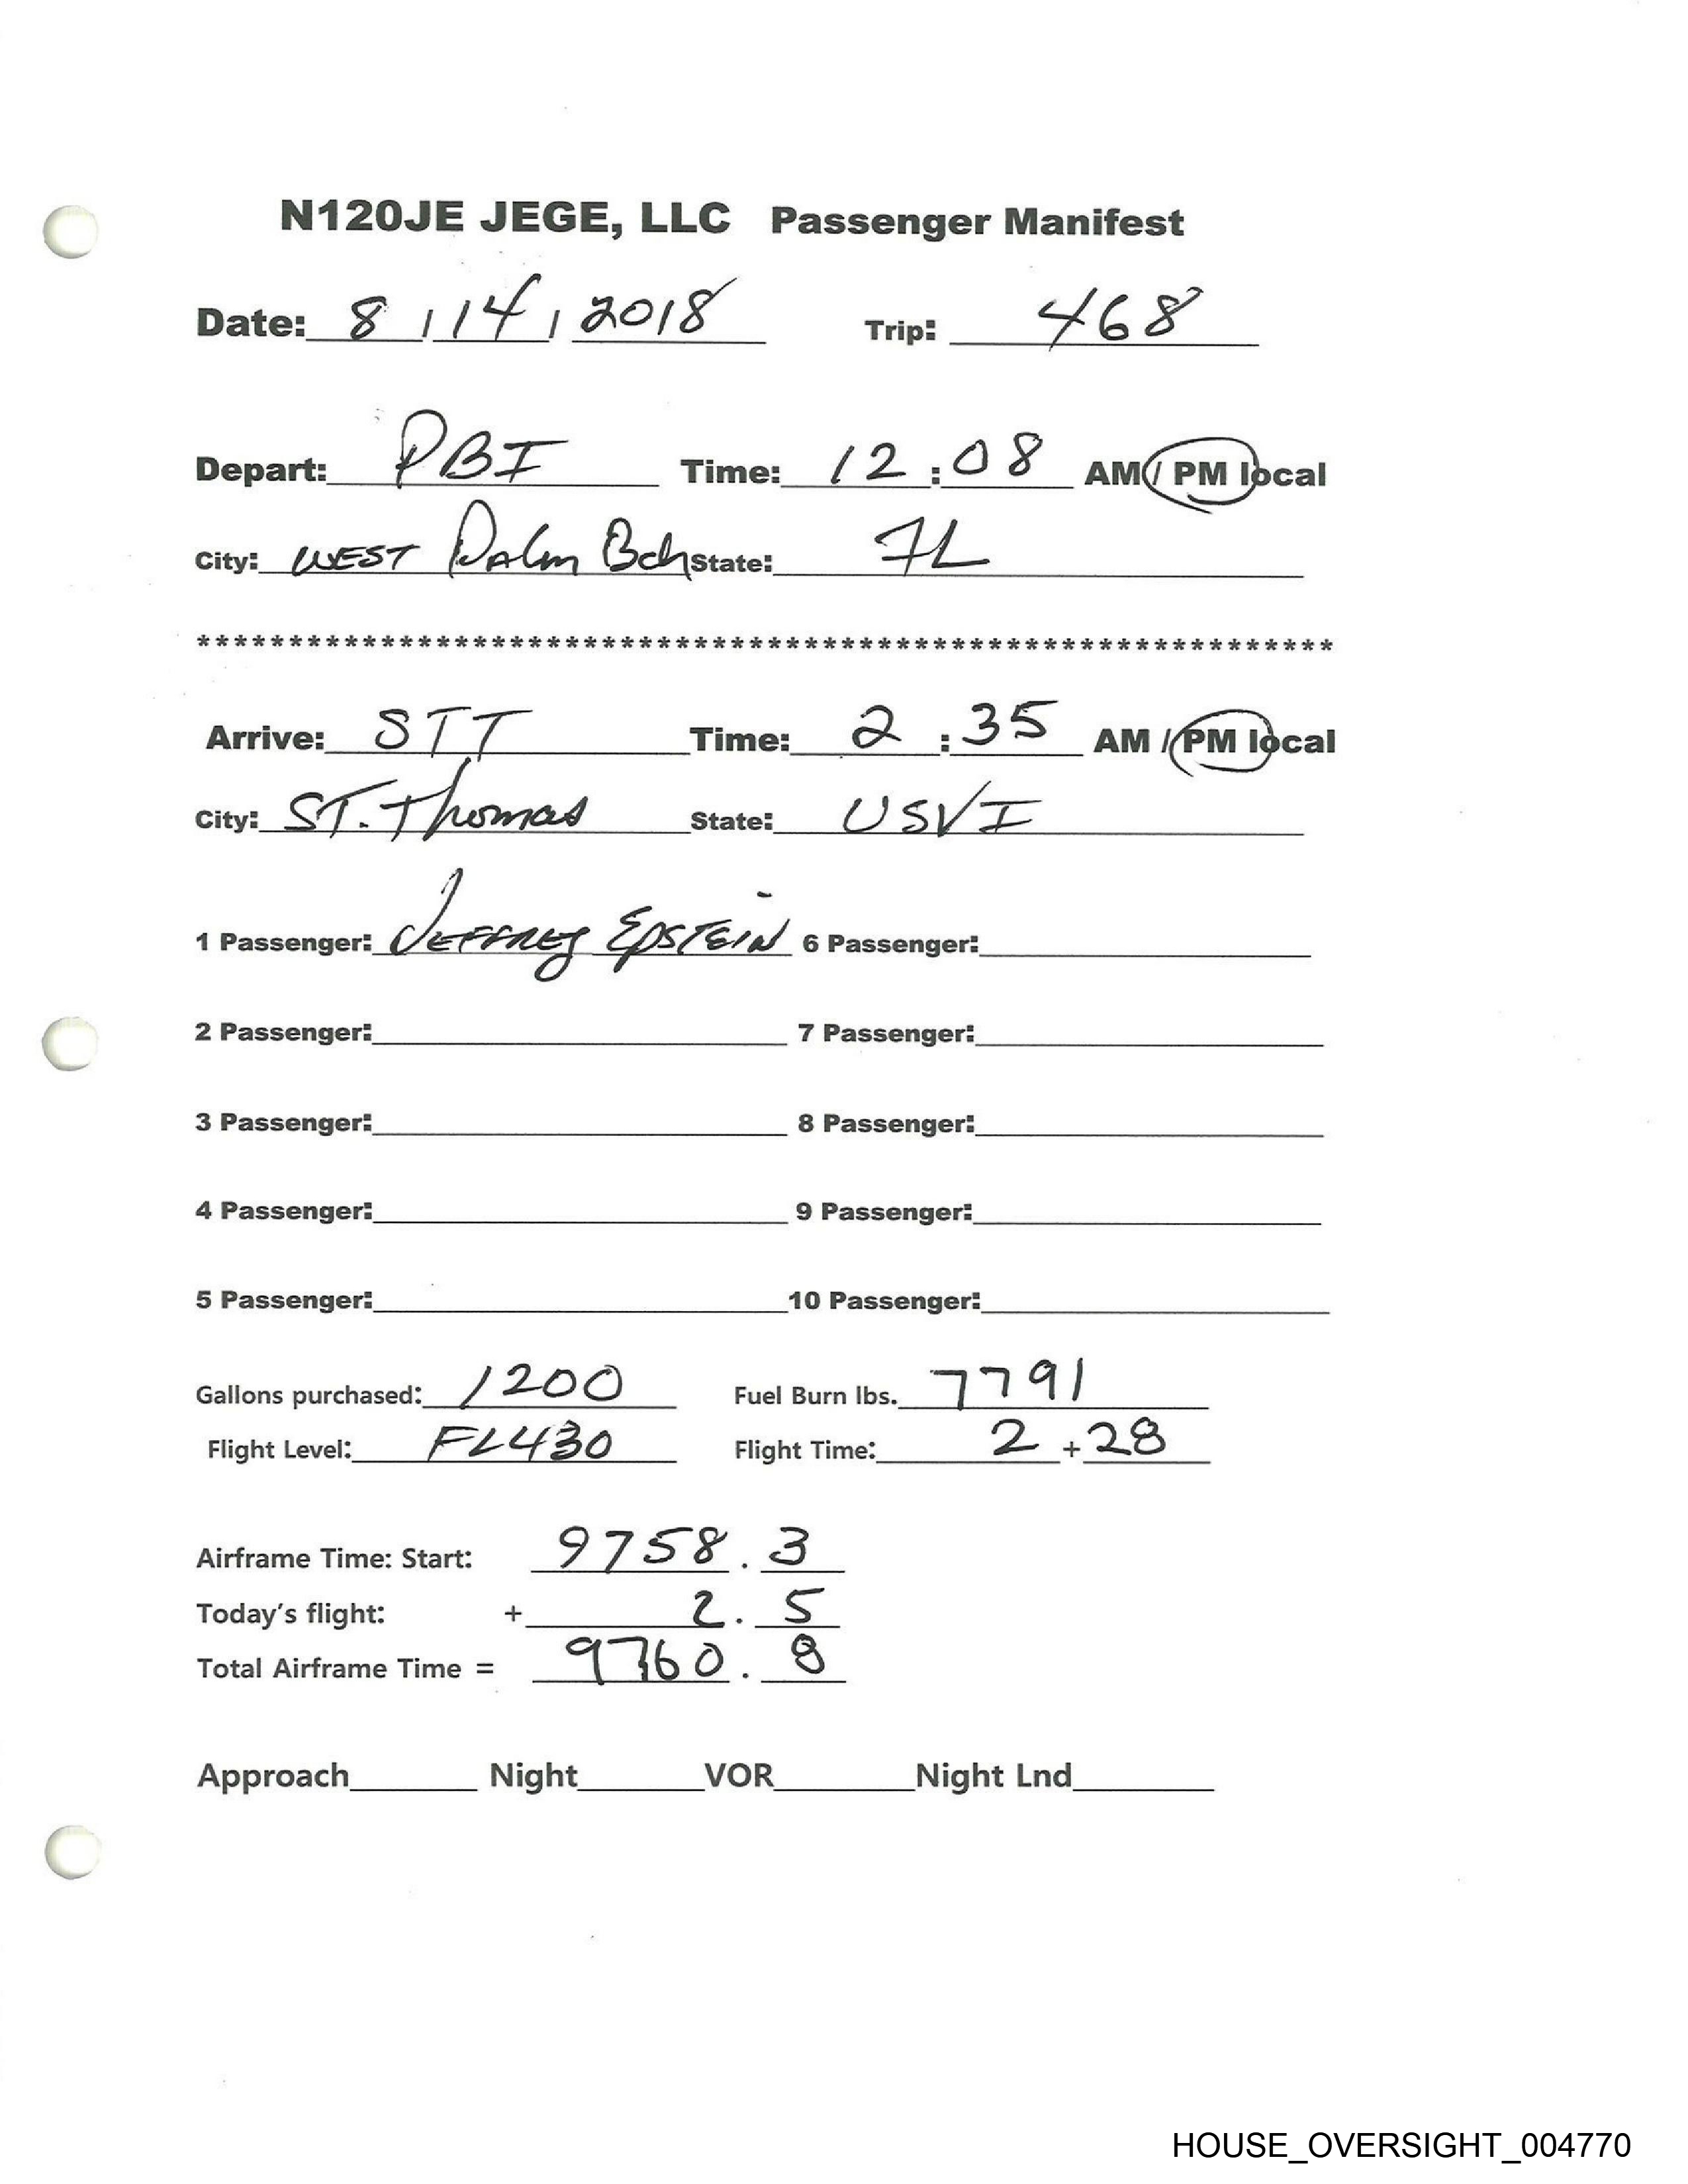 N120JE JEGE, LLC Passenger Manifest
Date: 8 / 14 / 2018 Trip: 468
Depart: PBI Time: 12 : 08 AM / PM local
City: WEST PALM Bch State: FL
**************************************************************
Arrive: STT Time: 2 : 35 AM / PM local
City: ST. Thomas State: USVI
1 Passenger: JEFFREY EPSTEIN 6 Passenger:
2 Passenger: 7 Passenger:
3 Passenger: 8 Passenger:
4 Passenger: 9 Passenger:
5 Passenger: 10 Passenger:
Gallons purchased: 1200 Fuel Burn lbs. 7791
Flight Level: FL430 Flight Time: 2 + 28
Airframe Time: Start: 9758 . 3
Today's flight: + 2 . 5
Total Airframe Time = 9760 . 8
Approach Night VOR Night Lnd
HOUSE_OVERSIGHT_004770